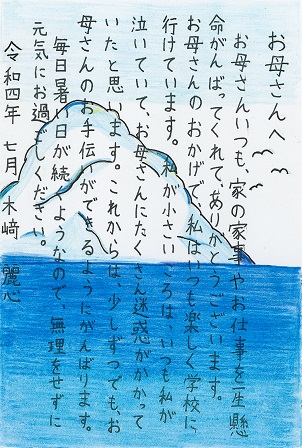 お母さんへ
お母さんいつも、家の家事やお仕事を一生懸
命がんばってくれて、ありがとうございます。
お母さんのおかげで、私はいつも楽しく学校に
行けています。私が小さいころは、いつも私が
泣いていて、お母さんにたくさん迷惑がかかって
いたと思います。これからは、少しずつでも、お
母さんのお手伝いができるようにがんばります。
毎日暑い日が続くようなので、無理をせずに
元気にお過ごしください。
令和四年 七月 木﨑 麗心